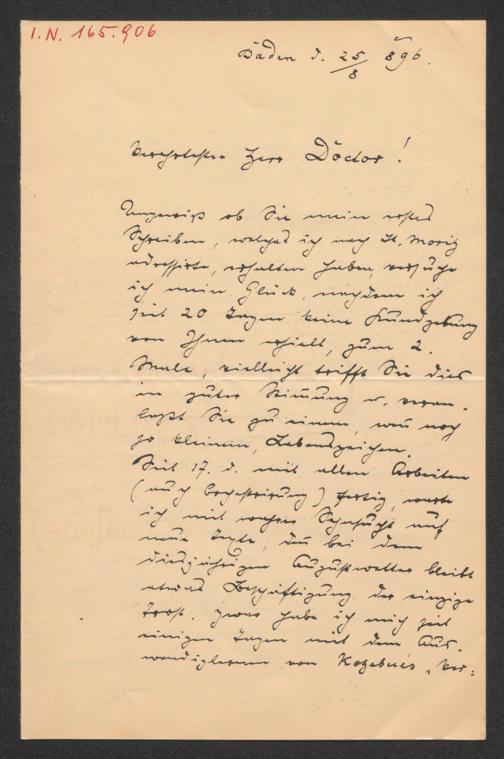 I.N. 165.906
Baden d. 25/8 896.
Verehrtester Herr Doctor!
Ungewiß ob Sie mein erstes
Schreiben, welches ich nach St. Moriz
adressirte, erhalten haben, versuche
ich mein Glück, nachdem ich
seit 20 Tagen keine Kundgebung
von Ihnen erhielt, zum 2.
Male, vielleicht trifft Sie dies
in guter Stimmung u. veran-
laßt Sie zu einem, wenn noch
so kleinem, Lebenszeichen.
Seit 17. d. mit allen Arbeiten
(auch Orchestrirung) fertig, warte
ich mit wahrer Sehnsucht auf
neue Texte, denn bei dem
diesjährigen Augustwetter bleibt
etwas Beschäftigung der einzige
Trost. Zwar habe ich mich seit
einigen Tagen mit dem Aus-
wendiglernen von Kotzebue's „Ver-